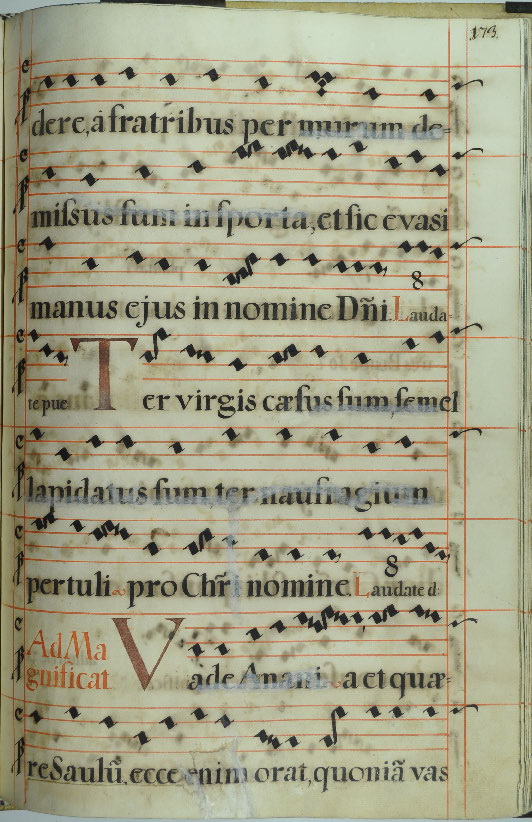 173.
dere, a fratribus per murum de-
missus sum in sporta, et sic evasi
manus ejus in nomine Dñi. Lauda-
8
te pue. Ter virgis cæsus sum, semel
lapidatus sum, ter naufragium
pertuli pro Chri nomine. Laudate d:
8
Ad Ma
gnificat Vade Anani a et quæ-
re Saulū, ecce enim orat, quoniã vas